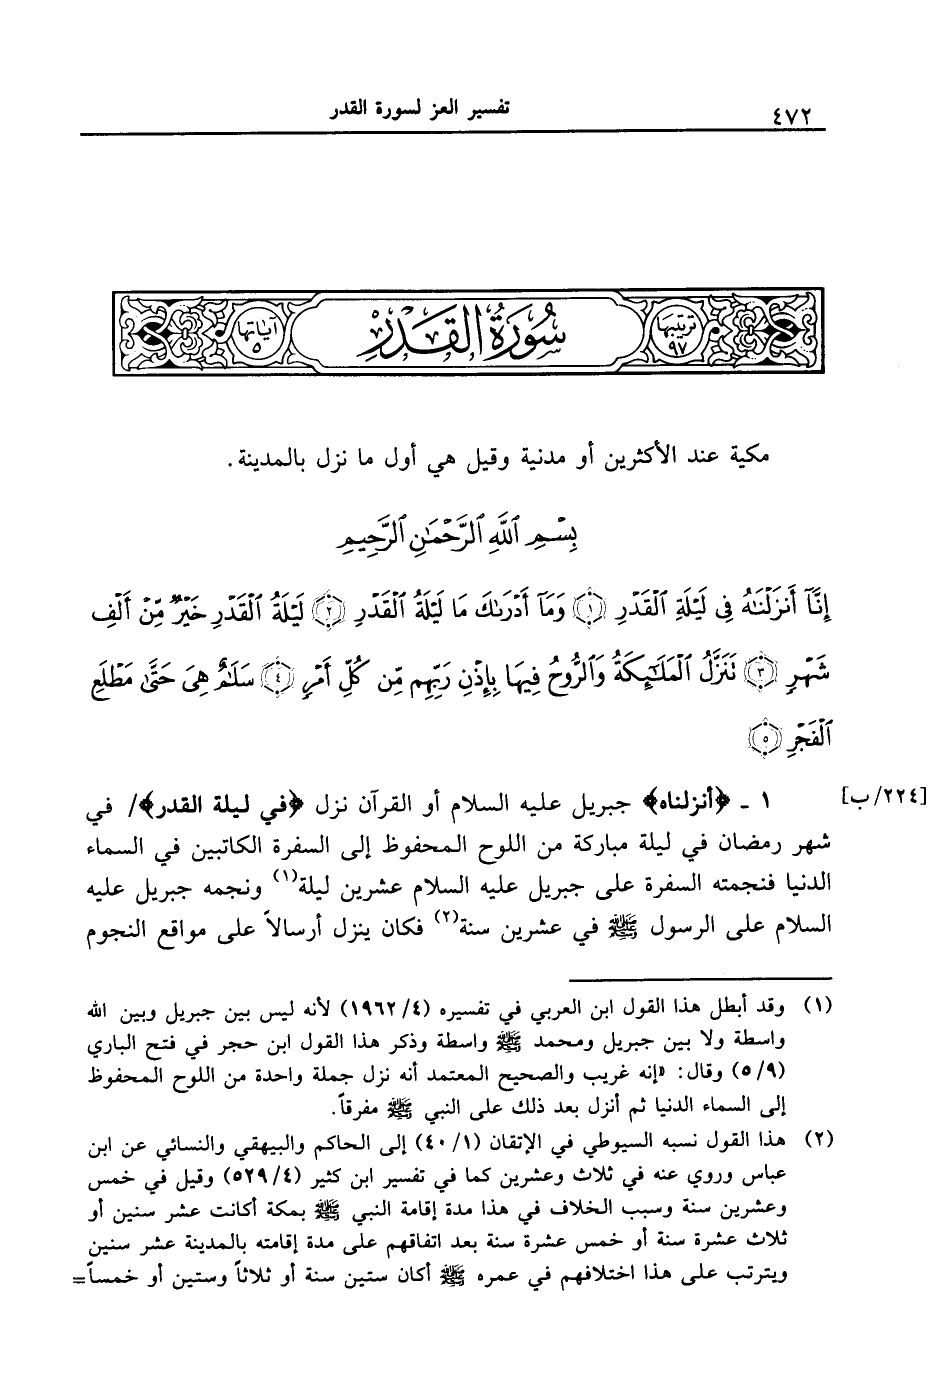 ٤٧٢
تفسير العز لسورة القدر
ترتيبها ٩٧
سُورَةُ القَدرِ
آياتها ٥
مكية عند الأكثرين أو مدنية وقيل هي أول ما نزل بالمدينة.
بِسْمِ اللَّهِ الرَّحْمَٰنِ الرَّحِيمِ
إِنَّآ أَنزَلْنَٰهُ فِى لَيْلَةِ ٱلْقَدْرِ ﴿١﴾ وَمَآ أَدْرَىٰكَ مَا لَيْلَةُ ٱلْقَدْرِ ﴿٢﴾ لَيْلَةُ ٱلْقَدْرِ خَيْرٌ مِّنْ أَلْفِ
شَهْرٍ ﴿٣﴾ تَنَزَّلُ ٱلْمَلَٰٓئِكَةُ وَٱلرُّوحُ فِيهَا بِإِذْنِ رَبِّهِم مِّن كُلِّ أَمْرٍ ﴿٤﴾ سَلَٰمٌ هِىَ حَتَّىٰ مَطْلَعِ
ٱلْفَجْرِ ﴿٥﴾
[٢٢٤/ب]
١ ـ ﴿أنزلناه﴾ جبريل عليه السلام أو القرآن نزل ﴿في ليلة القدر﴾/ في
شهر رمضان في ليلة مباركة من اللوح المحفوظ إلى السفرة الكاتبين في السماء
الدنيا فنجمته السفرة على جبريل عليه السلام عشرين ليلة(١) ونجمه جبريل عليه
السلام على الرسول ﷺ في عشرين سنة(٢) فكان ينزل أرسالاً على مواقع النجوم
(١) وقد أبطل هذا القول ابن العربي في تفسيره (١٩٦٢/٤) لأنه ليس بين جبريل وبين الله
واسطة ولا بين جبريل ومحمد ﷺ واسطة وذكر هذا القول ابن حجر في فتح الباري
(٥/٩) وقال: «إنه غريب والصحيح المعتمد أنه نزل جملة واحدة من اللوح المحفوظ
إلى السماء الدنيا ثم أنزل بعد ذلك على النبي ﷺ مفرقاً.
(٢) هذا القول نسبه السيوطي في الإتقان (٤٠/١) إلى الحاكم والبيهقي والنسائي عن ابن
عباس وروي عنه في ثلاث وعشرين كما في تفسير ابن كثير (٥٢٩/٤) وقيل في خمس
وعشرين سنة وسبب الخلاف في هذا مدة إقامة النبي ﷺ بمكة أكانت عشر سنين أو
ثلاث عشرة سنة أو خمس عشرة سنة بعد اتفاقهم على مدة إقامته بالمدينة عشر سنين
ويترتب على هذا اختلافهم في عمره ﷺ أكان ستين سنة أو ثلاثاً وستين أو خمساً=